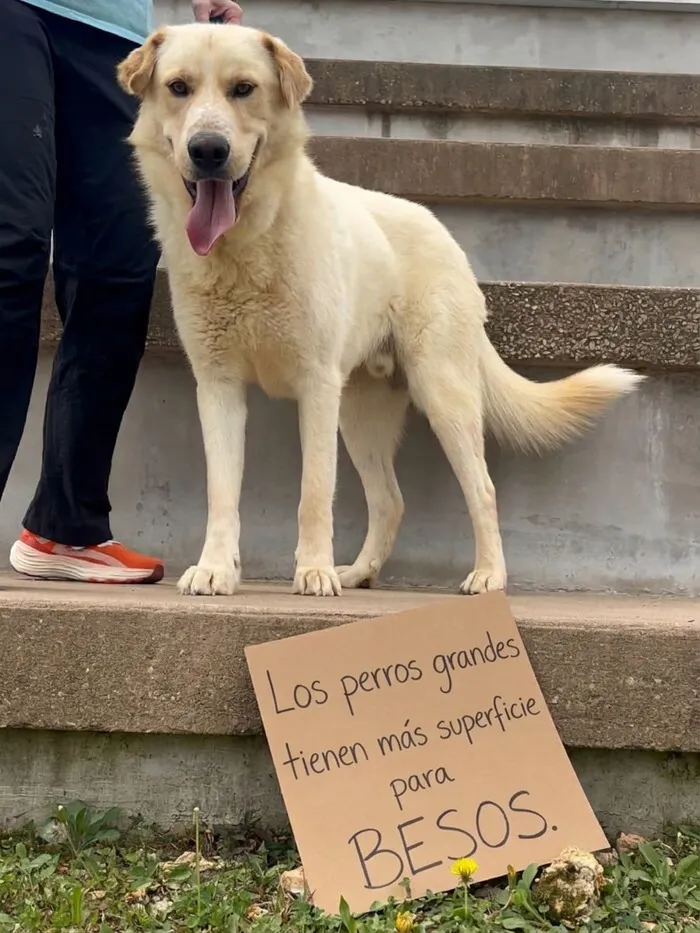 Los perros grandes
tienen más superficie
para
BESOS.